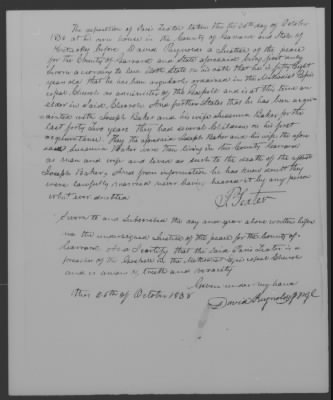 The deposition of Paris Teater taken this the 26th day of October
1838 at his own house in the County of Garrard and State of
Kentucky before David Reynolds a Justice of the peace
for the County of Garrard and State aforesaid being first duly
sworn according to law State on his oath that he is fifty Eight
years old that he has been regularly ordained in the Methodist Epis-
copal Church as a minister of the Gospel and is at this time an
elder in said Church And further States that he has been acqu-
ainted with Joseph Baker and his wife Susanna Baker for the
last forty two years they had several Children on his first
acquaintance they the aforesaid Joseph Baker and his wife the afore
said Susanna Baker was then living in this County Garrard
as man and wife and lived as such to the death of the
Joseph Baker, And from information he has no doubt they
were lawfully married never having heard it by any person
what ever doubted
P. Teater
Sworn to and Subscribed the day and year above written before
me the undersigned Justice of the peace for the County of
Garrard And I certify that the said Paris Teater is a
preacher of the Gospel in the Methodist Episcopal Church
and is a man of truth and veracity
Given under my hand
this 26th of October 1838
David Reynolds J P G C